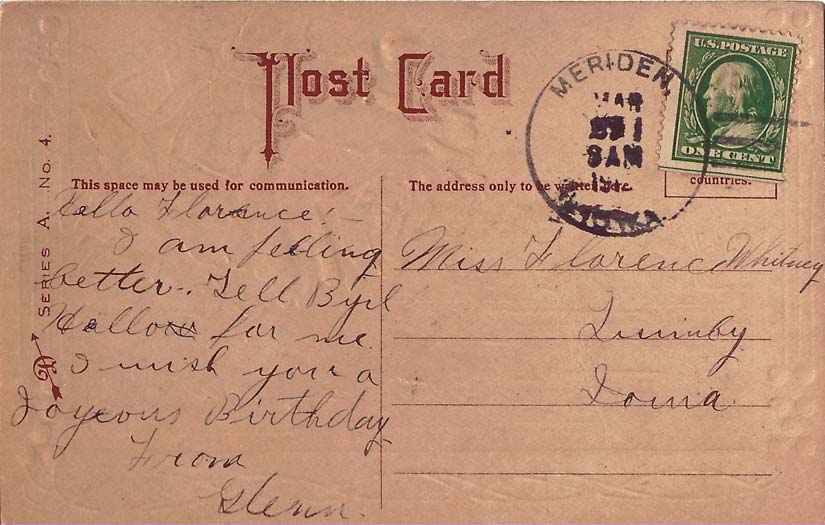 Post Card
U.S. POSTAGE
ONE CENT
MERIDEN,
MAR
8 AM
IOWA
This space may be used for communication.
The address only to be written here.
countries.
SERIES A. No. 4.
Hello Florence!-
I am feeling
better-. Tell Byrl
Hallow for me.
I wish you a
Joyeous Birthday
From
Glenn.
Miss Florenc Whitney
Quimby
Iowa.